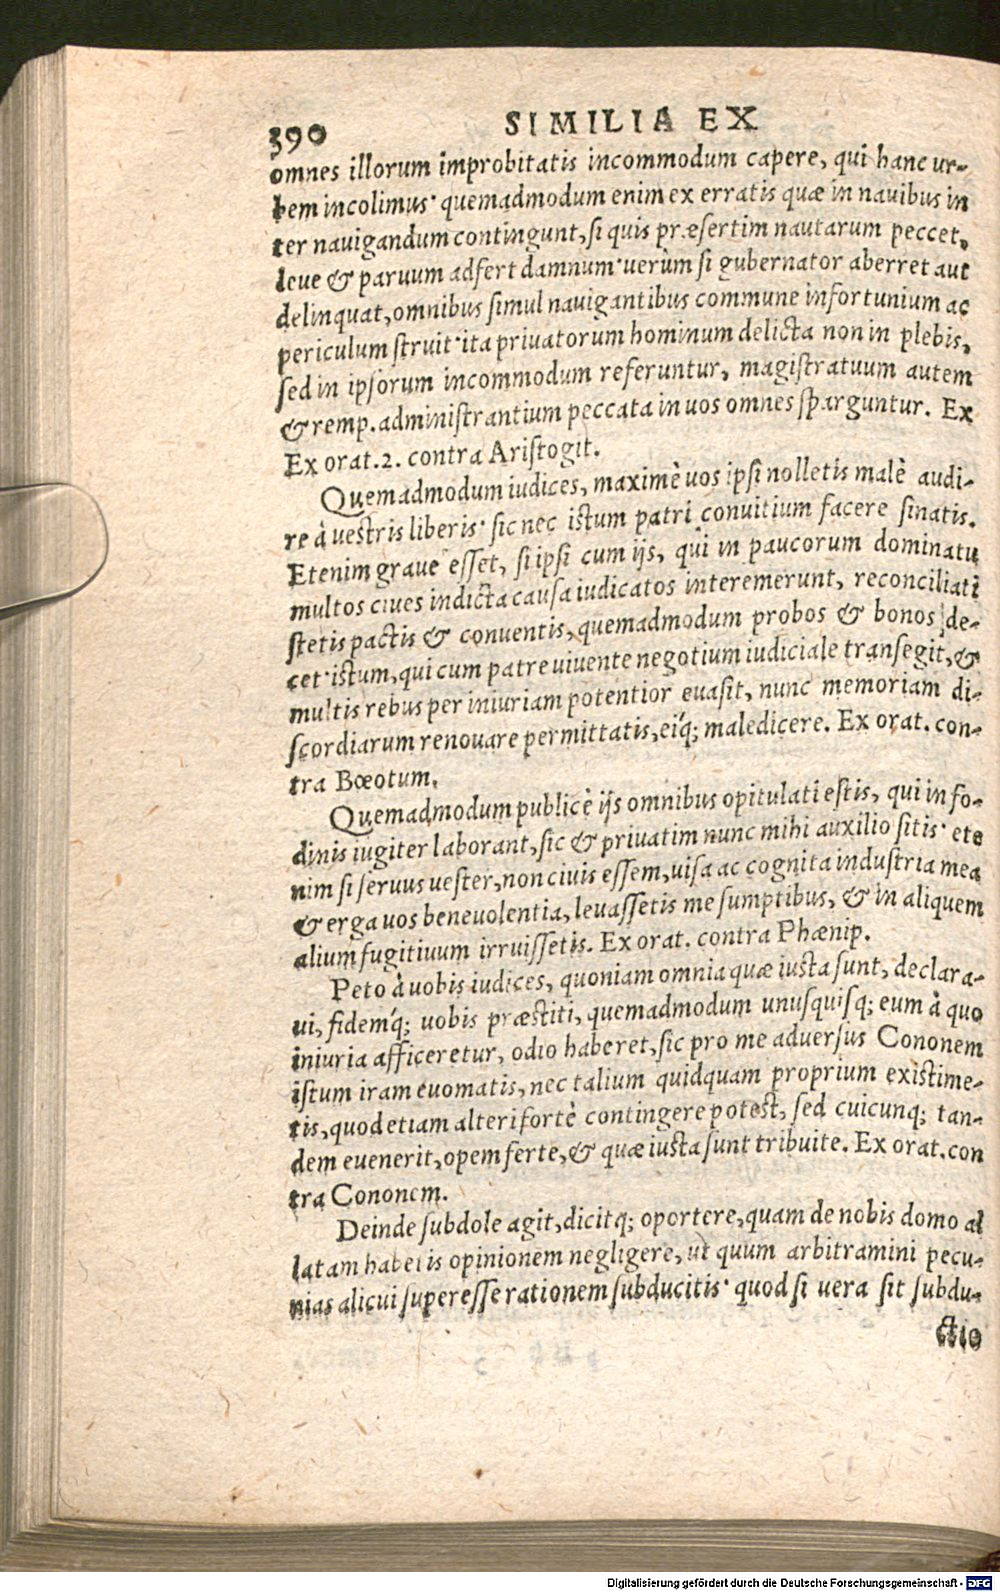 390 SIMILIA EX
omnes illorum improbitatis incommodum capere, qui hanc ur-
bem incolimus· quemadmodum enim ex erratis quæ in nauibus in
ter nauigandum contingunt, si quis præsertim nautarum peccet,
leue & paruum adfert damnum· uerùm si gubernator aberret aut
delinquat, omnibus simul nauigantibus commune infortunium ac
periculum struit· ita priuatorum hominum delicta non in plebis,
sed in ipsorum incommodum referuntur, magistratuum autem
& remp. administrantium peccata in uos omnes sparguntur. Ex
Ex orat. 2. contra Aristogit.
Quemadmodum iudices, maximè uos ipsi nolletis malè audi-
re à uestris liberis· sic nec istum patri conuitium facere sinatis.
Etenim graue esset, si ipsi cum ijs, qui in paucorum dominatu
multos ciues indicta causa iudicatos interemerunt, reconciliati
stetis pactis & conuentis, quemadmodum probos & bonos de-
cet· istum, qui cum patre uiuente negotium iudiciale transegit, &
multis rebus per iniuriam potentior euasit, nunc memoriam di-
scordiarum renouare permittatis, eiq́; maledicere. Ex orat. con-
tra Bœotum.
Quemadmodum publicè ijs omnibus opitulati estis, qui in fo-
dinis iugiter laborant, sic & priuatim nunc mihi auxilio sitis· ete
nim si seruus uester, non ciuis essem, uisa ac cognita industria mea
& erga uos beneuolentia, leuassetis me sumptibus, & in aliquem
alium fugitiuum irruissetis. Ex orat. contra Phænip.
Peto à uobis iudices, quoniam omnia quæ iusta sunt, declara-
ui, fidemq́; uobis præstiti, quemadmodum unusquisq; eum à quo
iniuria afficeretur, odio haberet, sic pro me aduersus Cononem
istum iram euomatis, nec talium quidquam proprium existime-
tis, quod etiam alteri fortè contingere potest, sed cuicunq; tan-
dem euenerit, opem ferte, & quæ iusta sunt tribuite. Ex orat. con
tra Cononem.
Deinde subdole agit, dicitq; oportere, quam de nobis domo al
latam habetis opinionem negligere, ut quum arbitramini pecu-
nias alicui superesse rationem subducitis· quod si uera sit subdu-
ctio
Digitalisierung gefördert durch die Deutsche Forschungsgemeinschaft - DFG